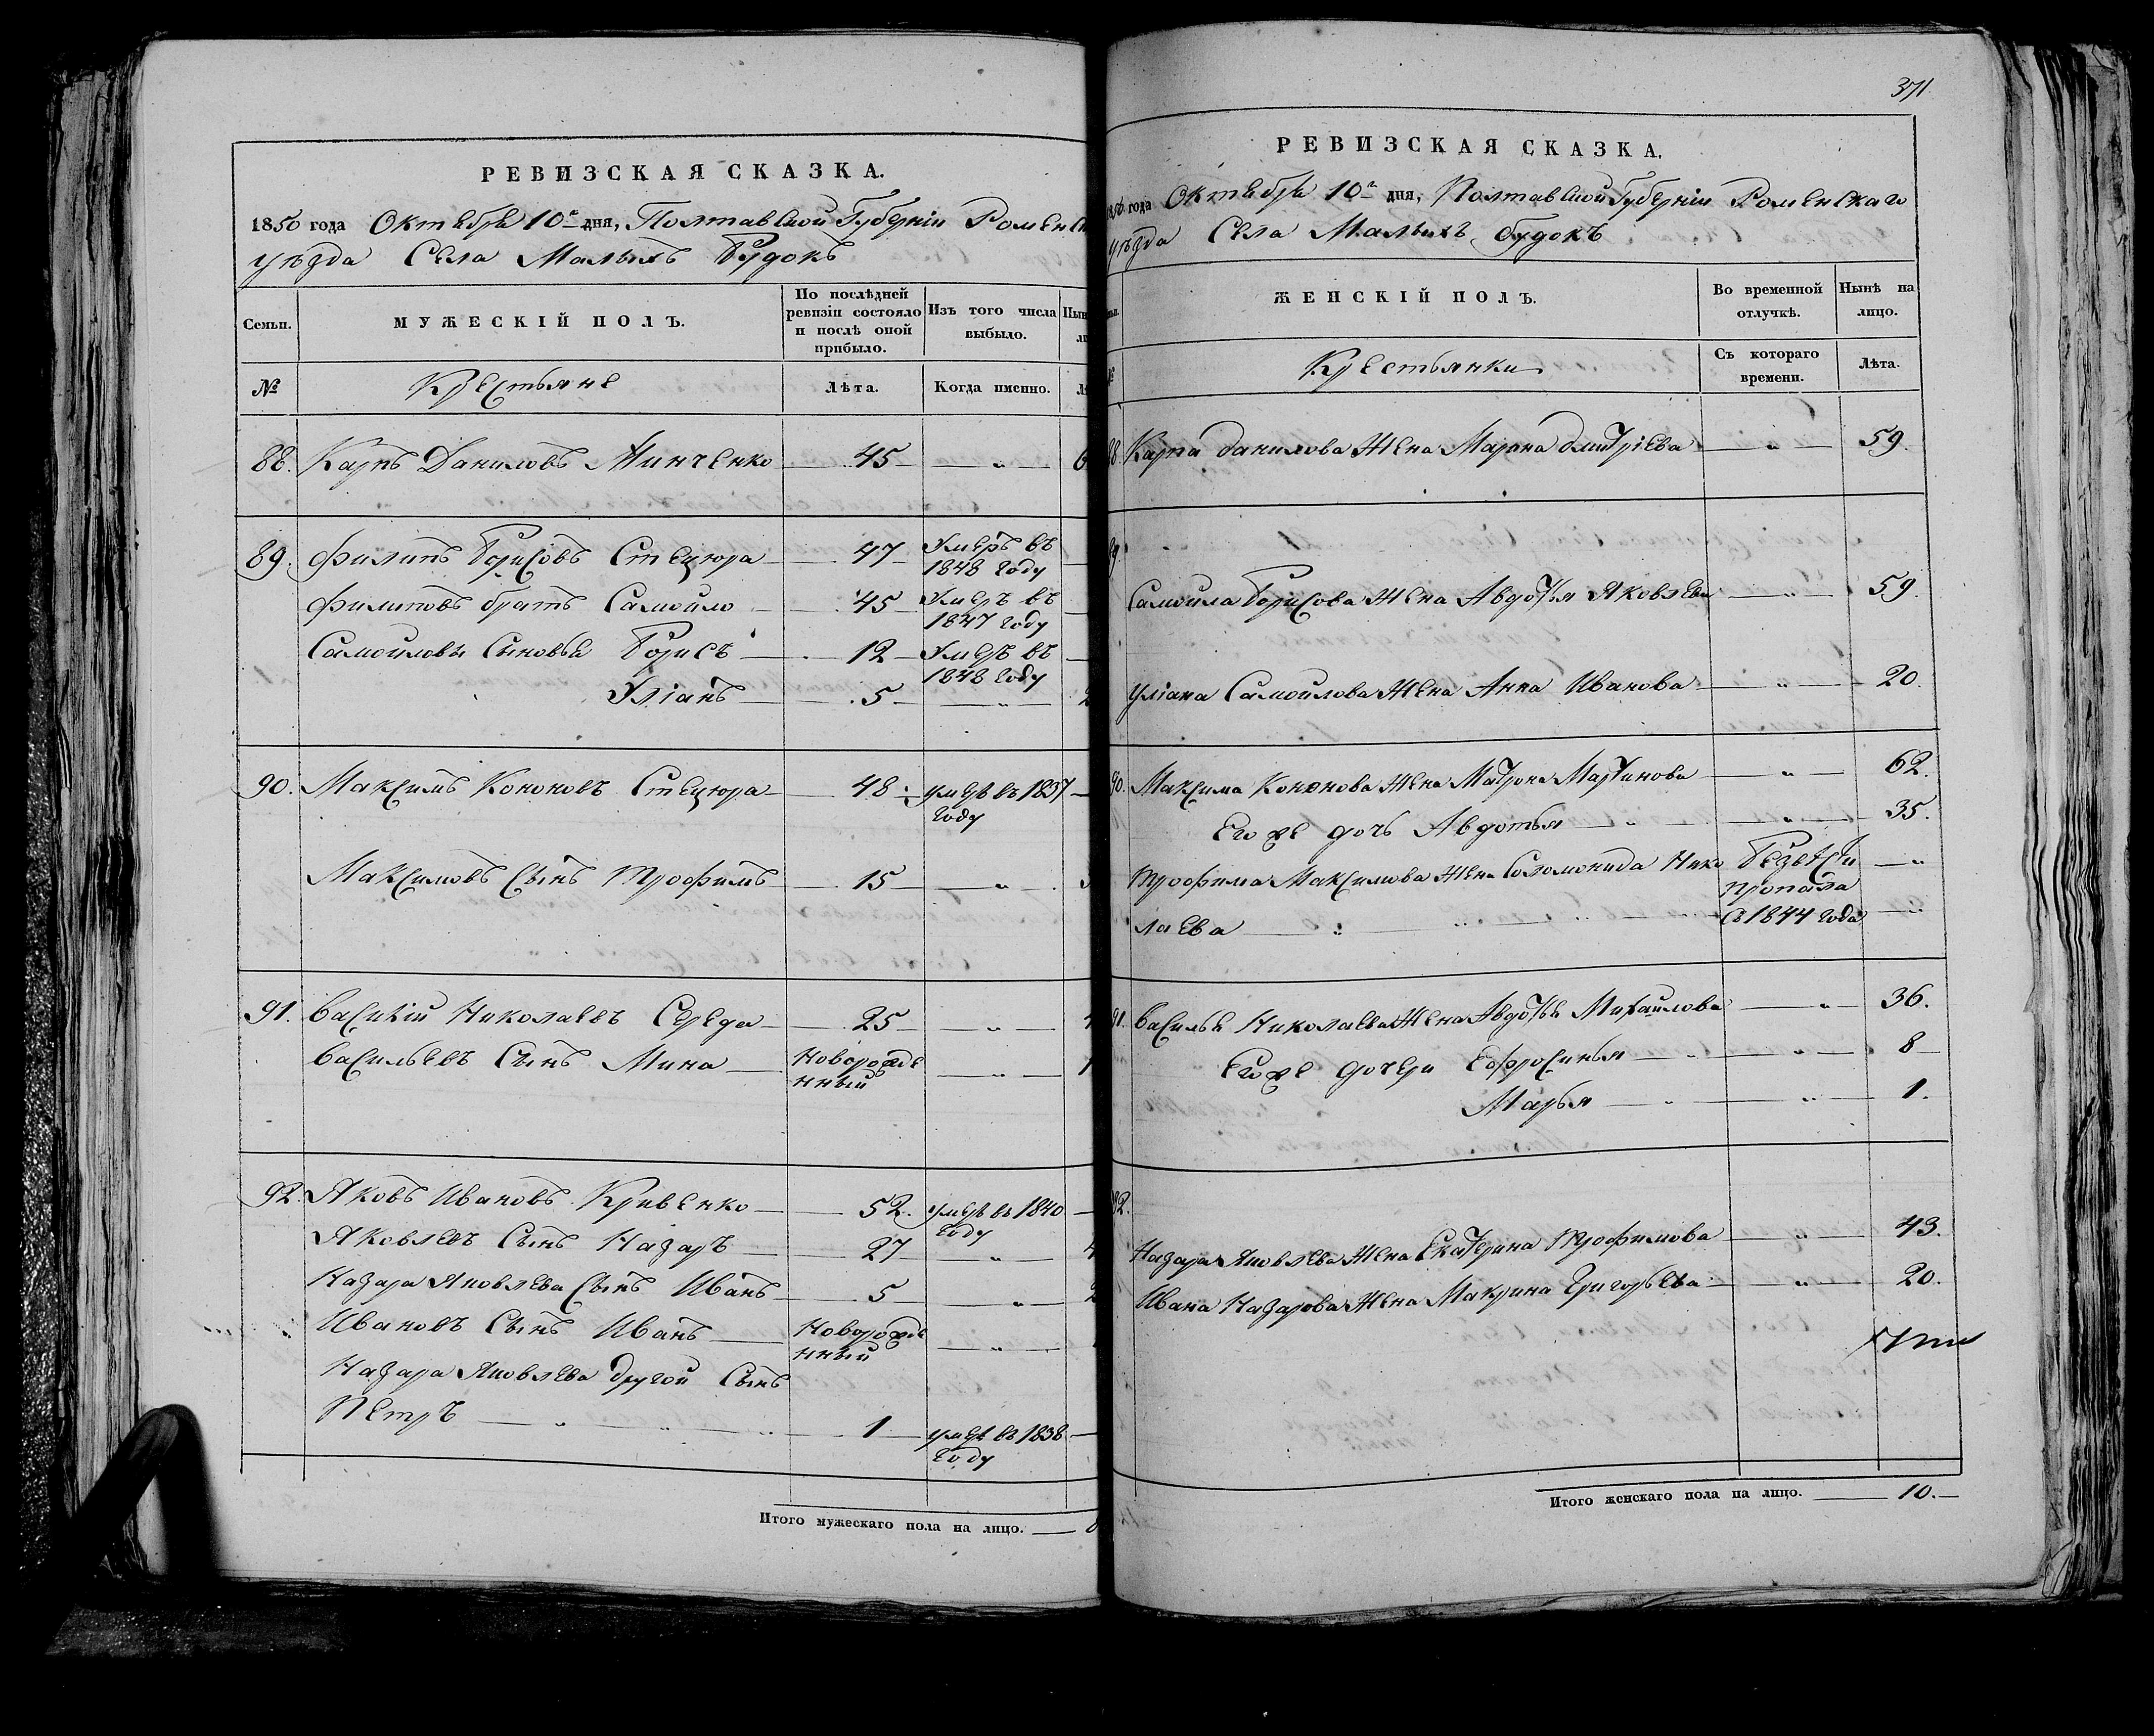 РЕВИЗСКАЯ СКАЗКА.
1850 года Октября 10го дня, Полтавской Губерніи Роменск
уѣзда Села Малыхъ Будокъ
Семьи.
МУЖЕСКІЙ ПОЛЪ.
По послѣдней ревизіи состояло и послѣ оной прибыло.
Изъ того числа выбыло.
№
Крестьяне
Лѣта.
Когда именно.
88. Карпъ Даниловъ Минченко 45 "
89. Филипъ Борисовъ Стецюра 47 Умеръ въ 1848 году
Филиповъ братъ Самойло 45 Умеръ въ 1847 году
Самойловы Сыновья Борисъ 12 Умеръ въ 1848 году
Уліанъ 5 "
90. Максимъ Кононовъ Стецюра 48 умеръ въ 1837 году
Максимовъ Сынъ Трофимъ 15 "
91. Василій Николаевъ Середа 25 "
Васильевъ Сынъ Мина Новорожденный "
92. Яковъ Ивановъ Кривенко 52. умеръ въ 1840 году
Яковлевъ Сынъ Назаръ 27 "
Назара Яковлева Сынъ Иванъ 5 "
Ивановъ Сынъ Иванъ Новорожденный "
Назара Яковлева другой Сынъ
Петръ 1 умеръ въ 1838 году
Итого мужескаго пола на лицо.
371
РЕВИЗСКАЯ СКАЗКА.
1850 года Октября 10го дня, Полтавской Губерніи Роменскаго
уѣзда Села Малыхъ Будокъ
ЖЕНСКІЙ ПОЛЪ.
Во временной отлучкѣ.
Нынѣ на лицо.
Крестьянки
Съ котораго времени.
Лѣта.
88. Карпа Данилова Жена Марина Дмитріева " 59.
89.
Самойла Борисова Жена Авдотья Яковлева " 59.
Уліана Самойлова Жена Анна Иванова " 20.
90. Максима Кононова Жена Матрона Мартинова " 62.
Его же дочь Авдотья " 35.
Трофима Максимова Жена Соломонида Нико Безвѣсти пропала "
лаева съ 1844 года "
91. Василья Николаева Жена Авдотья Михайлова " 36.
Его же дочери Ефросинья " 8
Марья " 1.
92.
Назара Яковлева Жена Екатерина Трофимова " 43.
Ивана Назарова Жена Макрина Григорьева " 20.
Итого женскаго пола на лицо. 10.